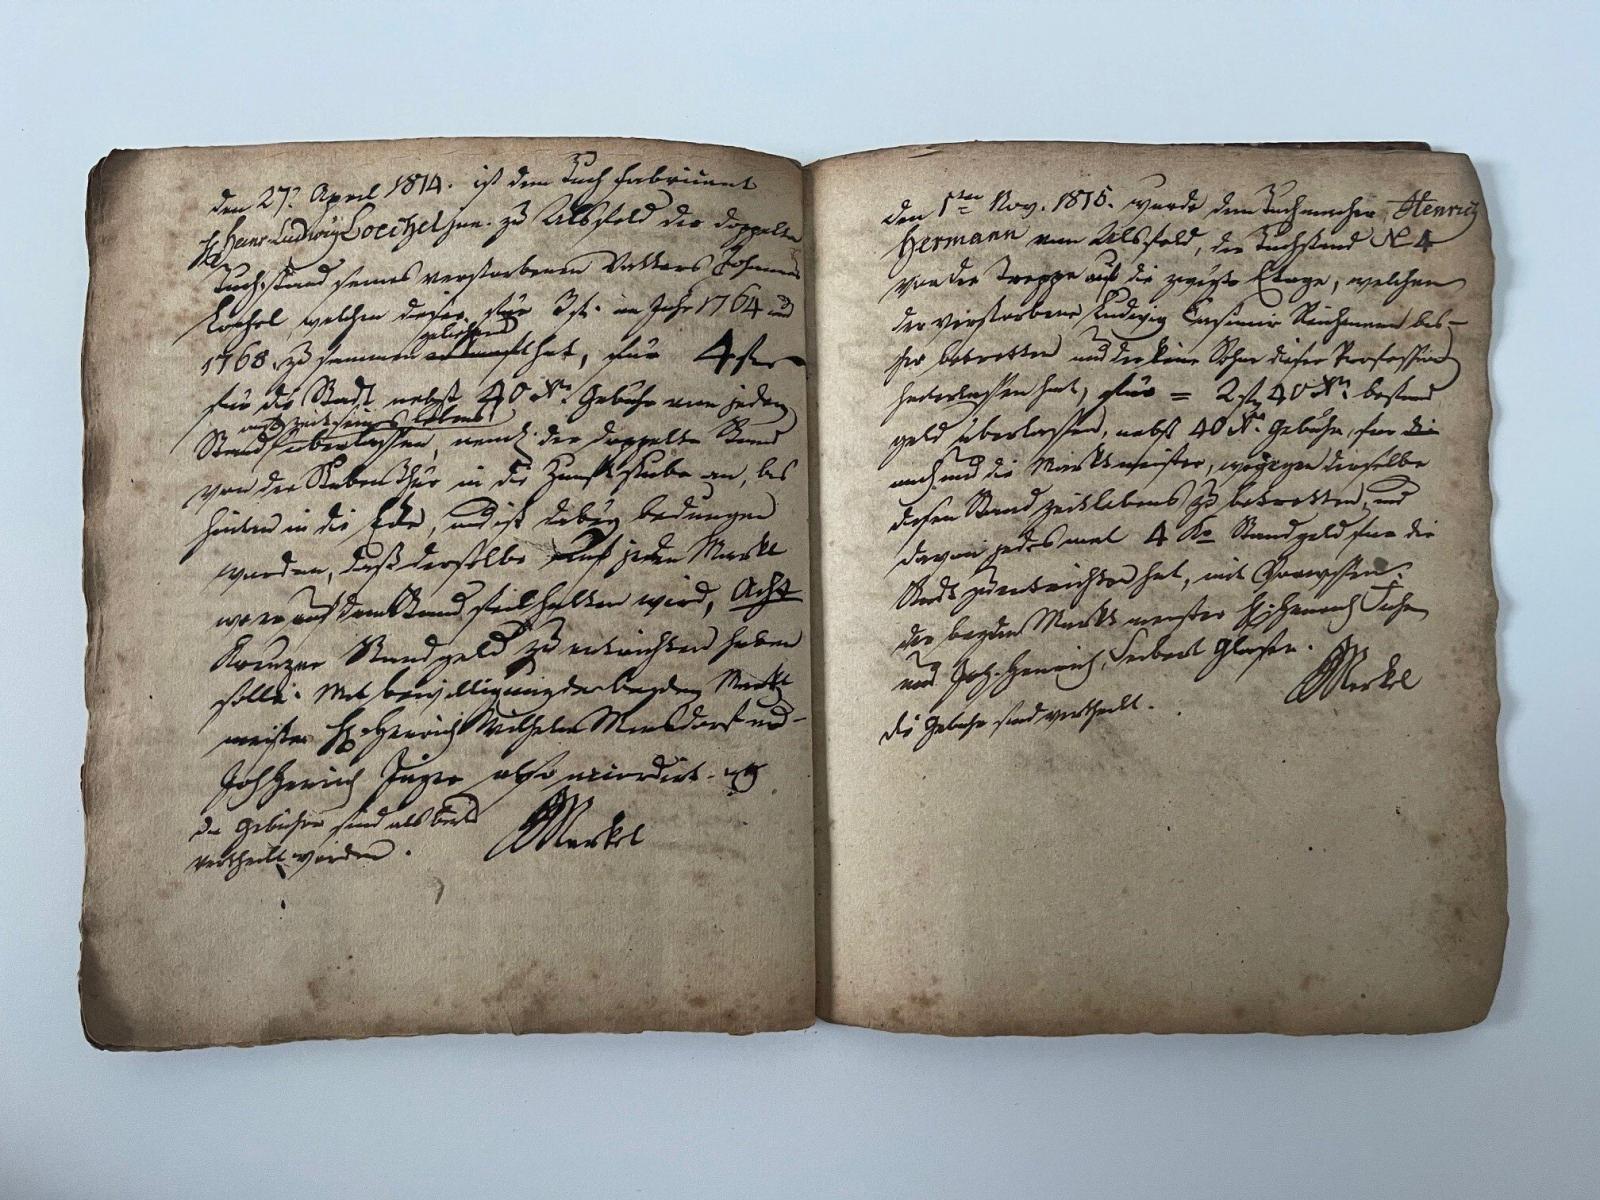 den 27ⁿ April 1814. ist dem Tuch fabricant
H. Henr. Ludwig Loechel jun. zu Alsfeld der doppelte
Tuchstand seines verstorbenen Vatters Johannes
Loechel, welchen dieser für 3 fl. im Jahr 1764 und
1768. zusammen geliehen hat, für 4 fl
für die Stadt nebst 40 Xr. Gebühr von jedem
auf zeit seines lebens
Stand überlassen, neml. der doppelte Stand
von der Stuben thür in die Zunft stube an, bis
hinten in die Ecke, und ist dabey bedungen
worden, daß derselbe auf jeden Markt
wo er auf dem Stand feil halten wird, Acht
Kreuzer Standgeld zu entrichten haben
solle. Mit bewilligung der beyden Markt
meister H. Henrich Wilhelm und
Joh Henrich also accordirt.
die Gebühren sind als bald
vertheilt worden. Merkel
den 1ten Nov. 1815. wurde dem Tuchmacher Henrich
Hermann von Alsfeld, der Tuchstand N 4
von der Treppe auf die zweite Etage, welchen
der verstorbene Ludwig Casimir Reichmann bis-
her betretten und der keine Söhne dieser Profession
hinterlassen hat, für = 2 fl 40 Xr. bestand
geld überlassen, nebst 40 Xr. Gebühr, für die
und die Marktmeister, wogegen derselbe
diesen Stand zeitlebens zu betretten und
davon jedes mal 4 Xr Standgeld für die
Stadt zu entrichten hat, mit Vorwissen
der beyden Markt meister H. Henrich
und Joh. Henrich Seibert Glaser.
Merkel
die Gebühr sind vertheilt.